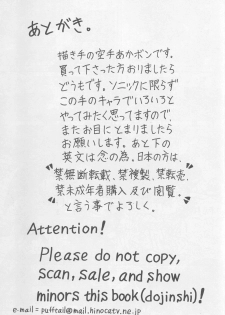 あとがき。
描き手の空手あかボンです。
買って下さった方おりましたら
どうもです。ソニックに限らず
この手のキャラでいろいろと
やってみたく思ってますので、
またお目にとまりましたら
お願いします。あと下の
英文は念の為。日本の方は、
禁無断転載、禁複製、禁転売、
禁未成年者購入及び閲覧。
と言う事でよろしく。
Attention!
Please do not copy,
scan, sale, and show
minors this book(dojinshi)!
e-mail = pufftail@mail.hinocatv.ne.jp